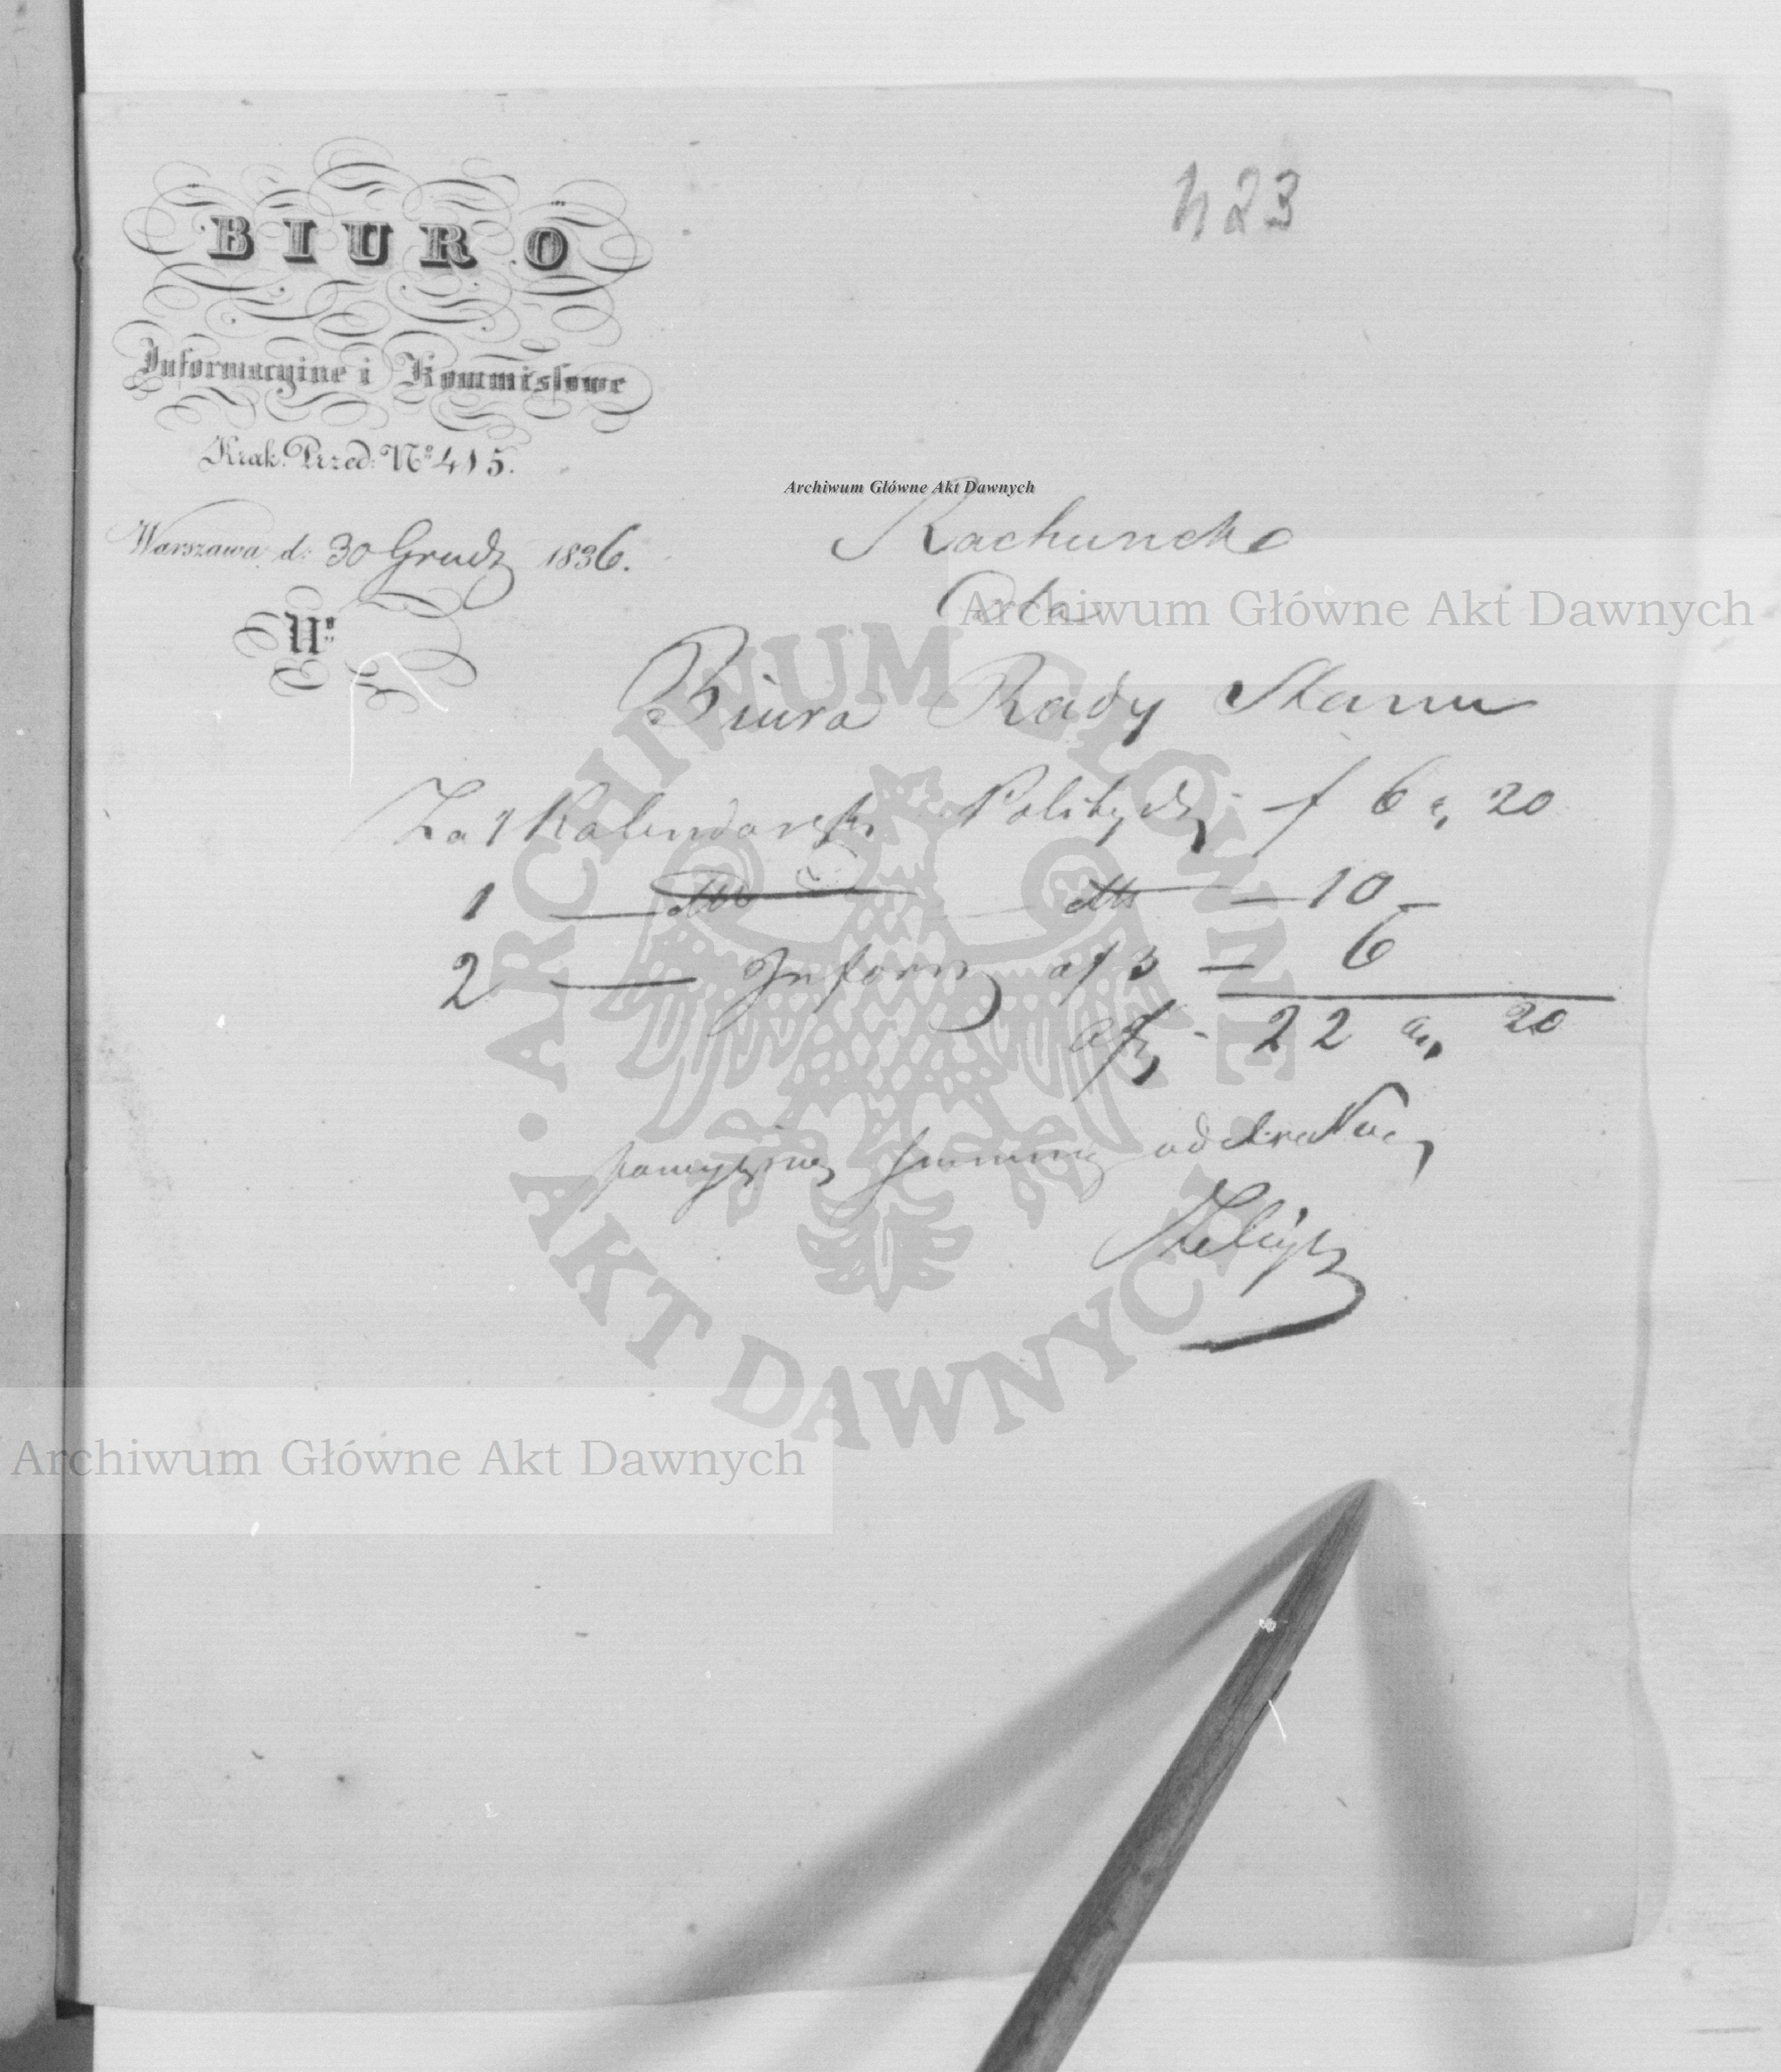 423
BIURO
Informacyine i Kommissowe
Krak. Przed: Nº 415.
Warszawa, d: 30 Grudz 1836.
Nº
Archiwum Główne Akt Dawnych
Rachunek
Dla
Archiwum Główne Akt Dawnych
Biura Rady Stanu
Za 1 Kalendarzyk Polityczy - f 6 g, 20
1 — dtto — dtto — 10 —
2 — Inform a f 3 — 6
22 20
powyższą summę odebrałem
ARCHIWUM GŁÓWNE · AKT DAWNYCH ·
Archiwum Główne Akt Dawnych